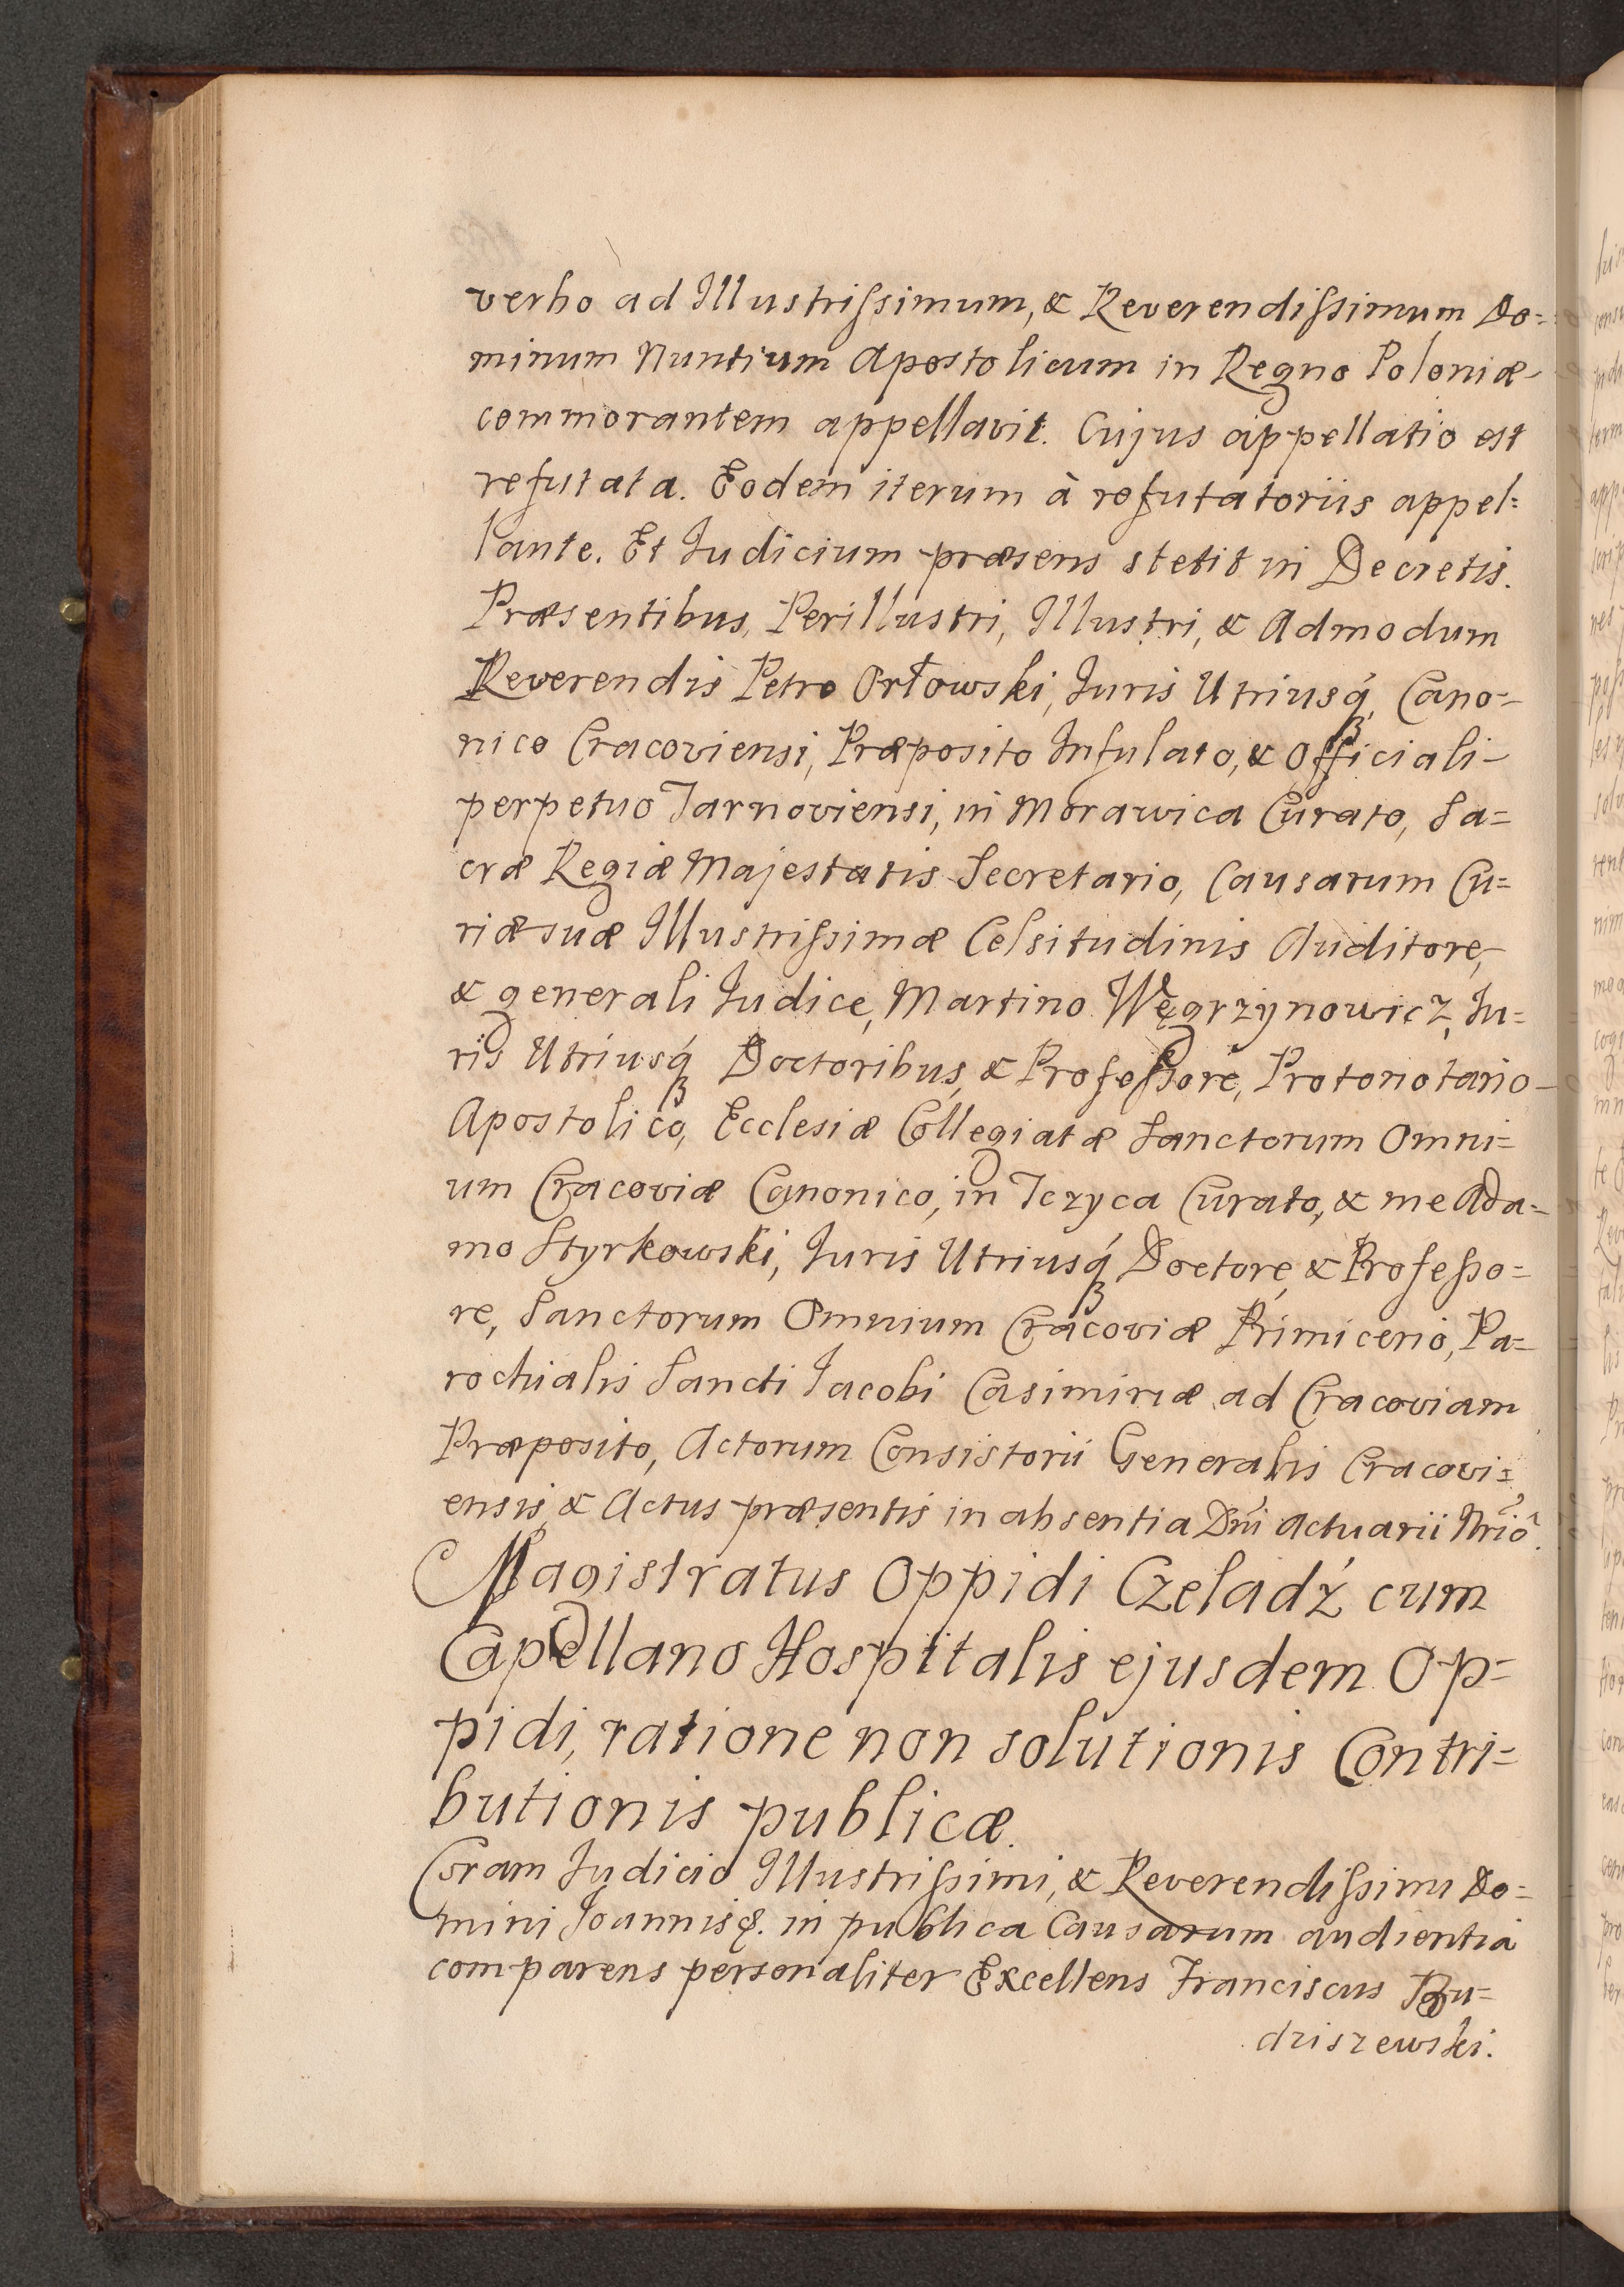 verbo ad Illustrissimum, & Reverendissimum Do=
minum Nuntium Apostolicum in Regno Poloniæ
commorantem appellavit. Cujus appellatio est
refutata. Eodem iterum à refutatoriis appel=
lante. Et Judicium præsens stetit in Decretis.
Præsentibus, Perillustri, Illustri, & Admodum
Reverendis Petro Orłowski, Juris Utriusq́, Cano-
nico Cracoviensi, Præposito Infulato, & Officiali
perpetuo Tarnoviensi, in Morawica Curato, Sa=
cræ Regiæ Majestatis Secretario, Causarum Cu=
riæ suæ Illustrissimæ Celsitudinis Auditore,
& generali Judice, Martino Węgrzynowicz, Ju=
ris Utriusq́ Doctoribus, & Professore, Protonotario
Apostolico, Ecclesiæ Collegiatæ Sanctorum Omni=
um Cracoviæ Canonico, in Tczyca Curato, & me Ada=
mo Styrkowski, Juris Utriusq́ Doctore, & Professo=
re, Sanctorum Omnium Cracoviæ Primicerio, Pa=
rochialis Sancti Jacobi Casimiriæ ad Cracoviam
Præposito, Actorum Consistorii Generalis Cracovi=
ensis, & Actus præsentis in absentia Dni Actuarii Nrio.
Magistratus Oppidi Czeladź cum
Capellano Hospitalis ejusdem Op=
pidi, ratione non solutionis Contri=
butionis publicæ.
Coram Judicio Illustrissimi, & Reverendissimi Do=
mini Joannis &. in publica Causarum audientia
comparens personaliter Excellens Franciscus
driszewski.